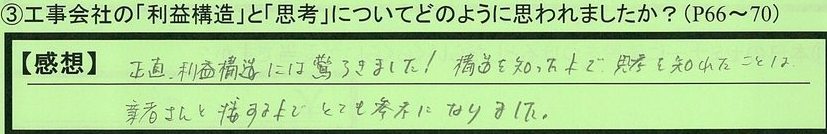 ③工事会社の「利益構造」と「思考」についてどのように思われましたか？(P66〜70)
【感想】 正直、利益構造には驚ろきました！ 構造を知った上で、思考を知れたことは、
業者さんと接する上でとても参考になりました。